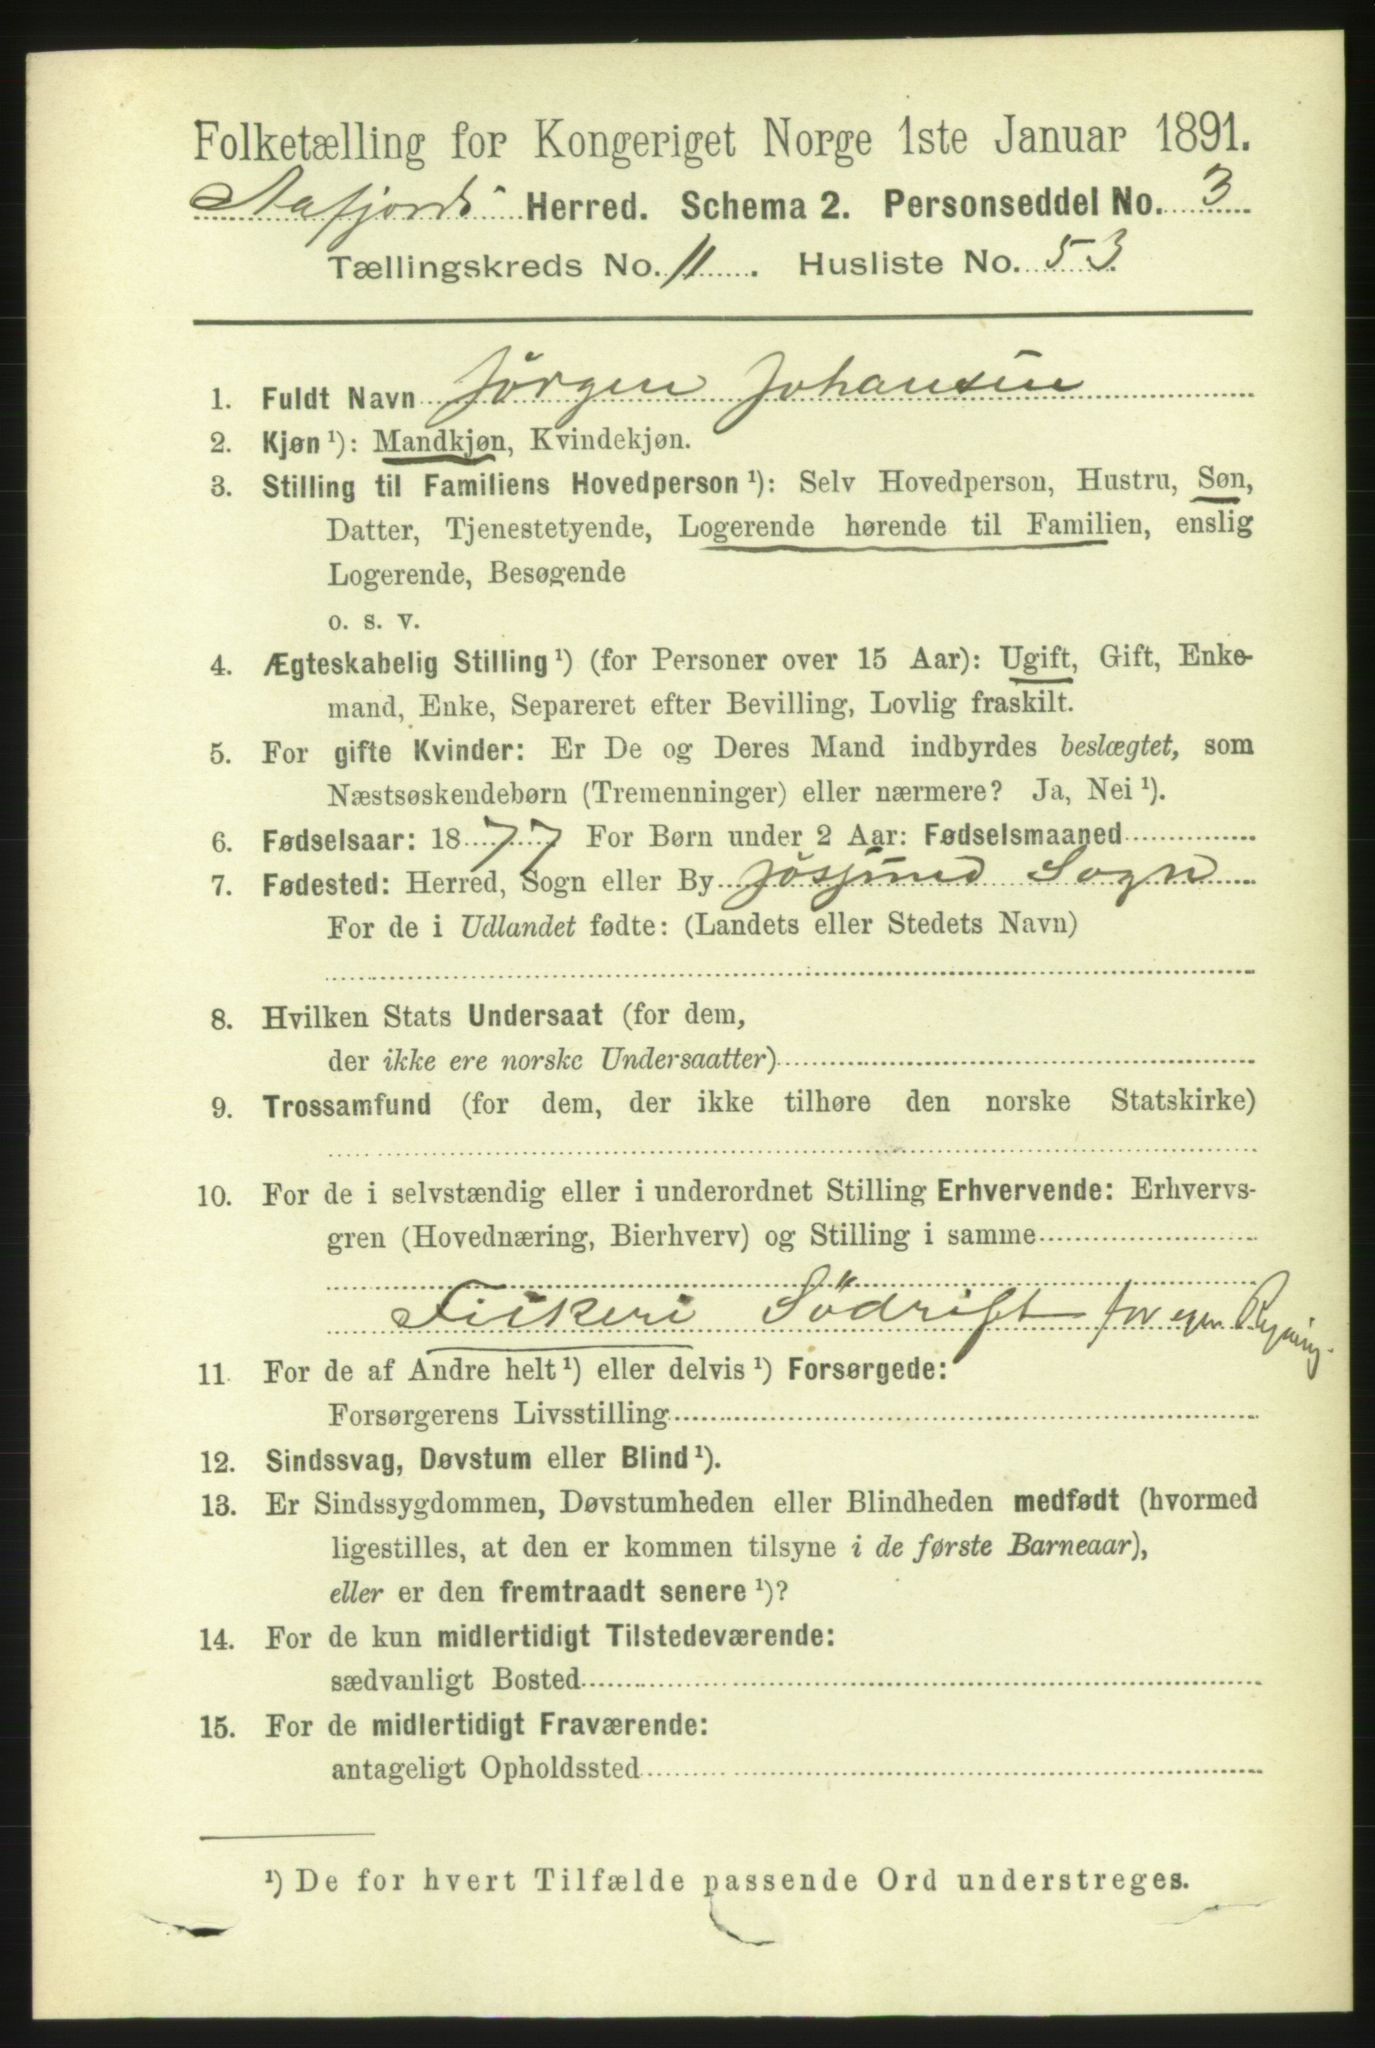 Folketælling for Kongeriget Norge 1ste Januar 1891.
Aafjords Herred. Schema 2. Personseddel No. 3
Tællingskreds No. 11. Husliste No. 53
1. Fuldt Navn Jörgen Johansen
2. Kjøn ¹): Mandkjøn, Kvindekjøn.
3. Stilling til Familiens Hovedperson ¹): Selv Hovedperson, Hustru, Søn,
Datter, Tjenestetyende, Logerende hørende til Familien, enslig
Logerende, Besøgende
o. s. v.
4. Ægteskabelig Stilling ¹) (for Personer over 15 Aar): Ugift, Gift, Enke-
mand, Enke, Separeret efter Bevilling, Lovlig fraskilt.
5. For gifte Kvinder: Er De og Deres Mand indbyrdes beslægtet, som
Næstsøskendebørn (Tremenninger) eller nærmere? Ja, Nei ¹).
6. Fødselsaar: 1877 For Børn under 2 Aar: Fødselsmaaned
7. Fødested: Herred, Sogn eller By Jösjund Sogn
For de i Udlandet fødte: (Landets eller Stedets Navn)
8. Hvilken Stats Undersaat (for dem,
der ikke ere norske Undersaatter)
9. Trossamfund (for dem, der ikke tilhøre den norske Statskirke)
10. For de i selvstændig eller i underordnet Stilling Erhvervende: Erhvervs-
gren (Hovednæring, Bierhverv) og Stilling i samme
Fiskeri Södrift for egen Regning.
11 For de af Andre helt ¹) eller delvis ¹) Forsørgede:
Forsørgerens Livsstilling
12. Sindssvag, Døvstum eller Blind ¹).
13. Er Sindssygdommen, Døvstumheden eller Blindheden medfødt (hvormed
ligestilles, at den er kommen tilsyne i de første Barneaar),
eller er den fremtraadt senere ¹)?
14. For de kun midlertidigt Tilstedeværende:
sædvanligt Bosted
15. For de midlertidigt Fraværende:
antageligt Opholdssted
¹) De for hvert Tilfælde passende Ord understreges.